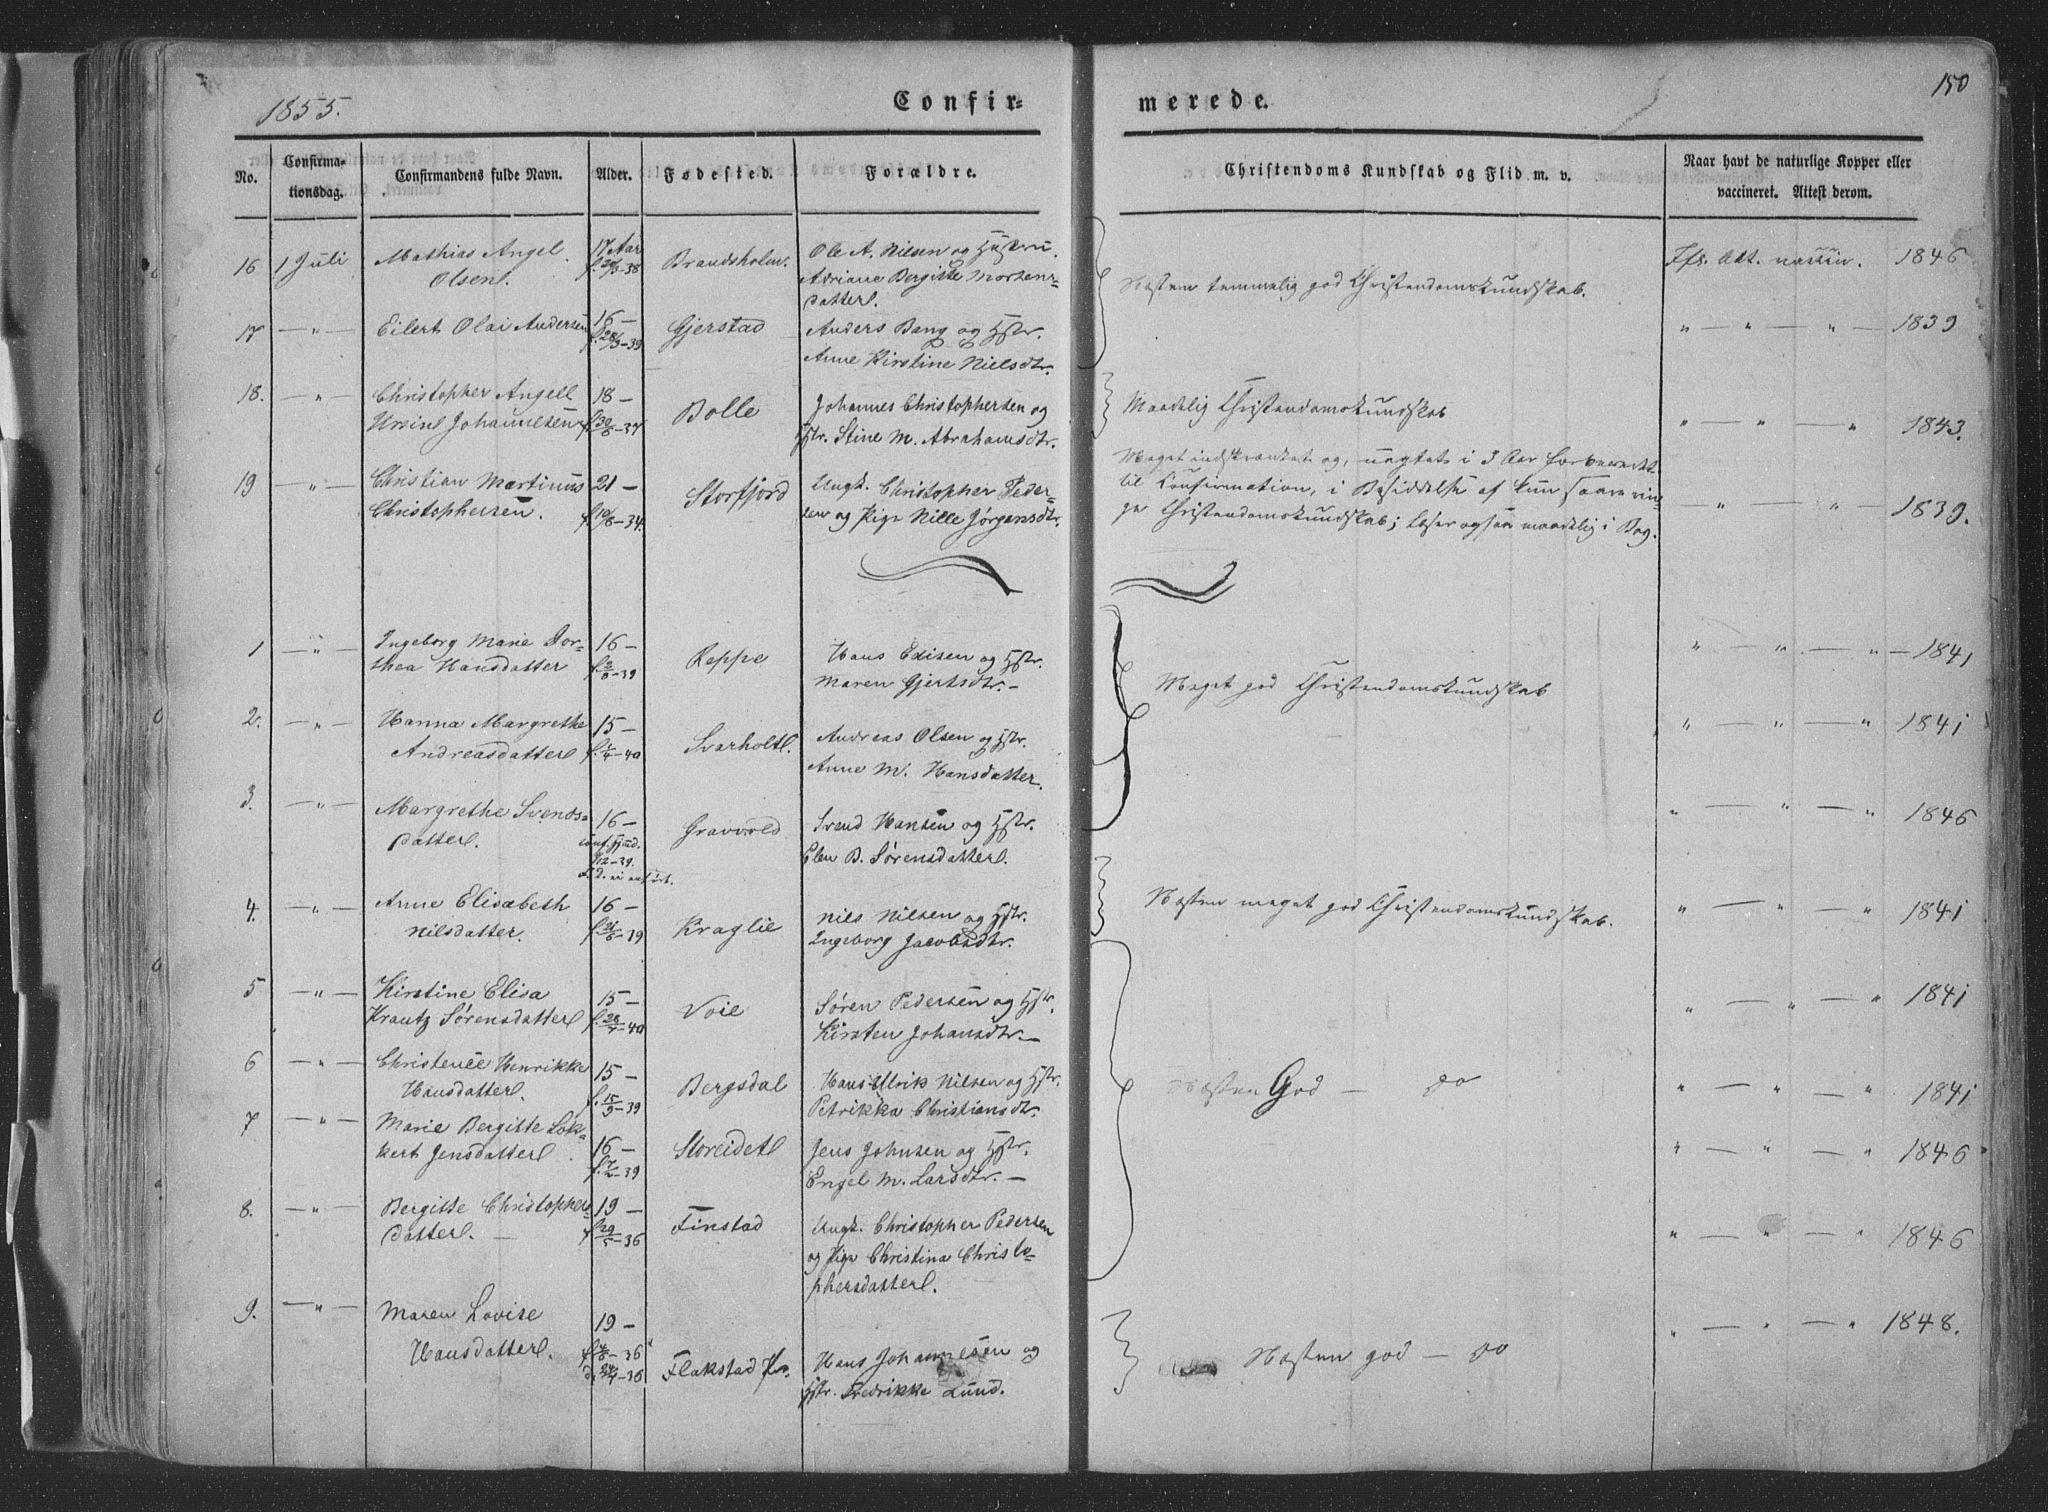 1855.
Confir-
merede.
150
No.
Confirma-
tionsdag.
Confirmandens fulde Navn.
Alder.
Fødested.
Forældre.
Christendoms Kundskab og Flid m. v.
Naar havt de naturlige Kopper eller
vaccineret. Attest derom.
16 1 Juli Mathias Angel Olsen. 17 Aar Brandsholm.
Ole A. Nilsen og Hustru
Adriane Bergitte Mortens-
datter.
Næsten temmelig god Christendomskundskab.
1846
17 — " — Eilert Olai Andersen 16 — f. 28/3-39 Gjerstad
Anders Bang og Hstr.
Anne Kirstine Nielsdtr.
" — " — " — 1839
18. — " — Christopher Angell
Ursine Johannesen 18 — Bolle
Johannes Christophersen og
Hstr. Stine M. Abrahamsdtr.
Maadelig Christendomskundskab
" — " — " 1843.
19 — " — Christian Martinus
Christophersen. 21 — f. 10/8-34. Storfjord
Ungk. Christopher Peder-
sen og Pige Nille Jørgensdtr.
Meget indskrænket og, uagtet i 3 Aar forberedt
til Confirmation, i Besiddelse af kun saare rin-
ge Christendomskundskab; læser ogsaa maadelig i Bog.
— " — " — " — 1839.
1 — " — Ingeborg Marie Dor-
thea Hansdatter 16 — Reppe
Hans Edisen og Hstr.
Maren Gjertsdtr. —
Meget god Christendomskundskab
" — " — " — 1841
2. — " — Hanna Margrethe
Andreasdatter 15 — f. 1/4-40 Svarholtl.
Andreas Olsen og Hstr.
Anne M. Hansdatter.
" — " — " 1841
3. — " — Margrethe Svends-
datter. 16 — Gravvold
Svend Hansen og Hstr.
Elen B. Sørensdatter.
" — " — " 1846
4. — " — Anne Elisabeth
Nilsdatter. 16 — Kraglie
Nils Nilsen og Hstr.
Ingeborg Jacobsdtr.
Næsten meget god Christendomskundskab.
" — " — " 1841
5 — " — Kirstine Elisa
Krautz Sørensdatter 15 — Voie
Søren Pedersen og Hstr.
Kirsten Johansdtr. —
" — " — " 1841
6 — " — Christence Henrikka
Hansdatter. 15 — f. 15/9-39 Bergsdal
Hans Ulrik Nilsen og Hstr.
Petrikka Christiansdtr.
Næsten God — do
" — " " 1841
7 — " — Marie Bergitte Lok-
kert Jensdatter 16 — f. 7/2-39 Storeidet
Jens Johnsen og Hstr.
Engel M. Larsdtr. —
" — " — " 1846
8. — " — Bergitte Christophers-
datter. — 19 — f. 29/5-36 Finstad
Ungk. Christopher Pedersen
og Pige Christina Christo-
phersdatter.
" — " — " 1846
9. — " — Maren Lovise
Hansdatter. 19 — Flakstad
Hans Johannesen og
Hstr. Fredrikke Lund.
Næsten god — do
" — " — " 1848.